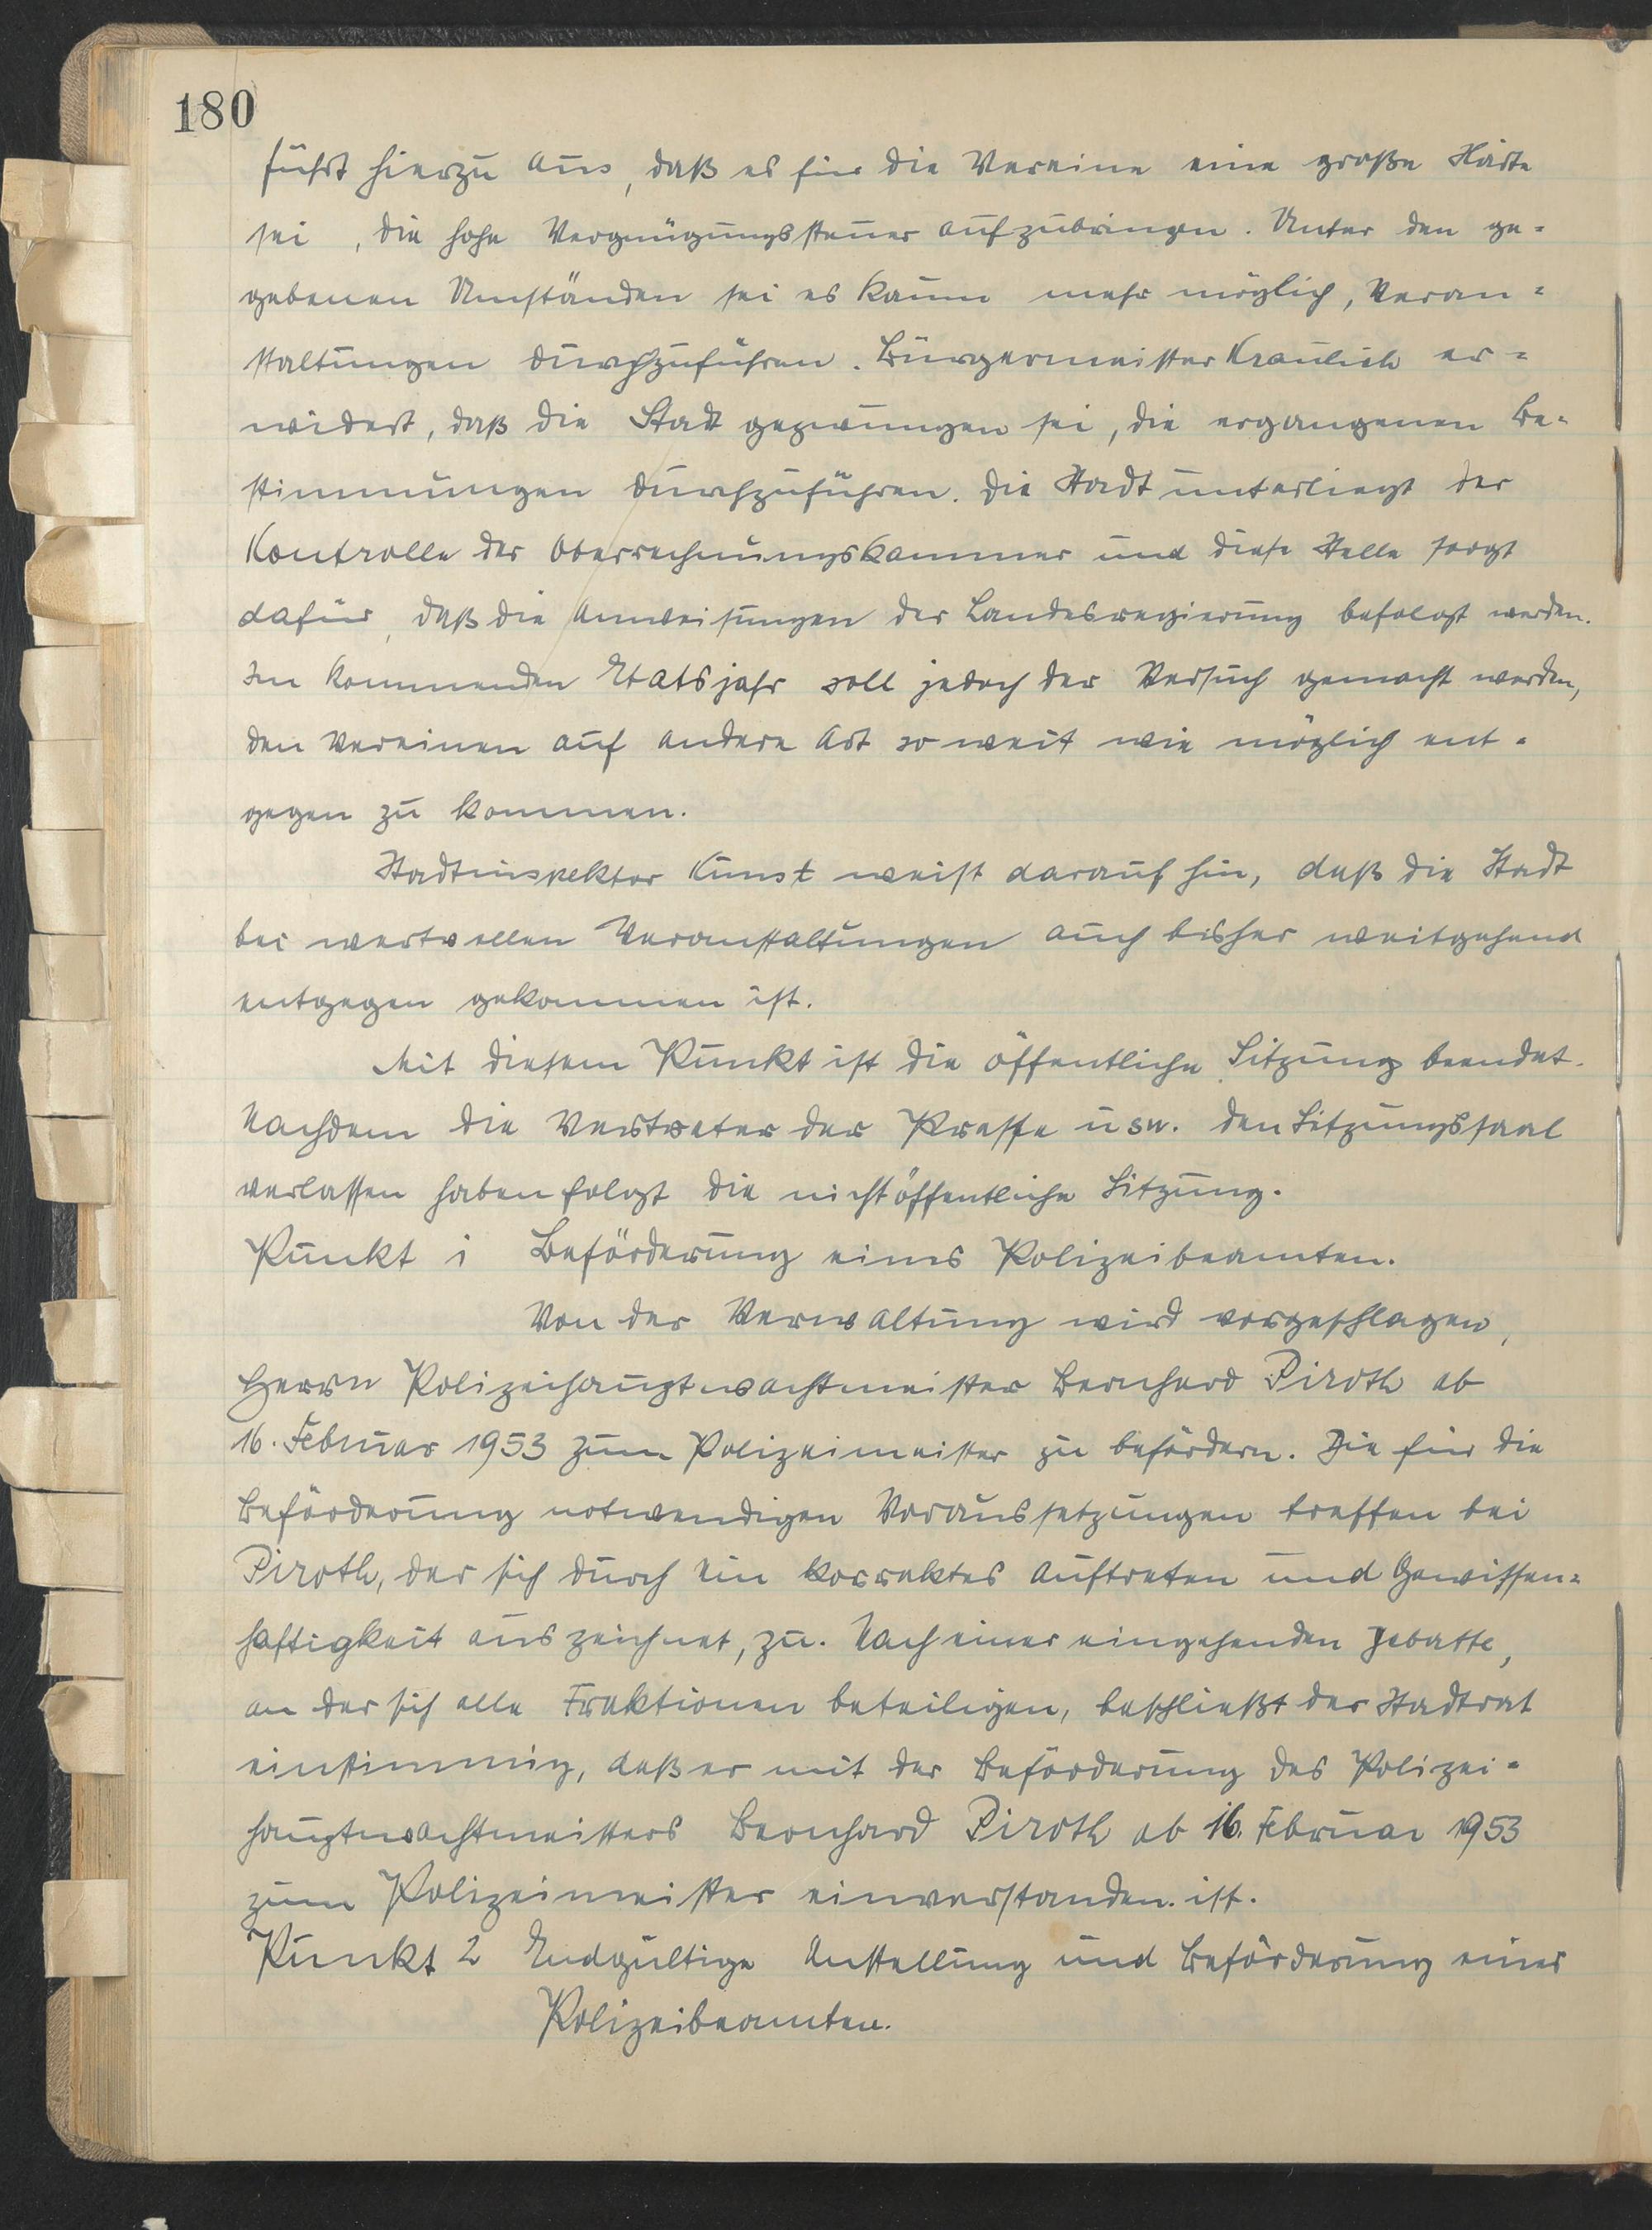 180
führt hierzu aus, daß es für die Vereine eine große Härte
sei, die hohe Vergnügungssteuer aufzubringen. Unter den ge=
gebenen Umständen sei es kaum mehr möglich, Veran=
staltungen durchzuführen. Bürgermeister Kraulich er=
widert, daß die Stadt gezwungen sei, die ergangenen Be=
stimmungen durchzuführen. Die Stadt unterliegt der
Kontrolle der Oberrechnungskammer und diese Stelle sorgt
dafür, daß die Anweisungen der Landesregierung befolgt werden.
Im kommenden Etatsjahr soll jedoch der Versuch gemacht werden,
den Vereinen auf andere Art so weit wie möglich ent=
gegen zu kommen.
Stadtinspektor Kunst weist darauf hin, daß die Stadt
bei wertvollen Veranstaltungen auch bisher weitgehend
entgegen gekommen ist.
Mit diesem Punkt ist die öffentliche Sitzung beendet.
Nachdem die Vertreter der Presse usw. den Sitzungssaal
verlassen haben folgt die nichtöffentliche Sitzung.
Punkt 1 Beförderung eines Polizeibeamten.
Von der Verwaltung wird vorgeschlagen,
Herrn Polizeihauptwachtmeister Bernhard Piroth ab
16. Februar 1953 zum Polizeimeister zu befördern. Die für die
Beförderung notwendigen Voraussetzungen treffen bei
Piroth, der sich durch ein korrektes Auftreten und Gewissen=
haftigkeit auszeichnet, zu. Nach einer eingehenden Debatte,
an der sich alle Fraktionen beteiligen, beschließt der Stadtrat
einstimmig, daß er mit der Beförderung des Polizei=
hauptwachtmeisters Bernhard Piroth ab 16. Februar 1953
zum Polizeimeister einverstanden ist.
Punkt 2 Endgültige Anstellung und Beförderung eines
Polizeibeamten.